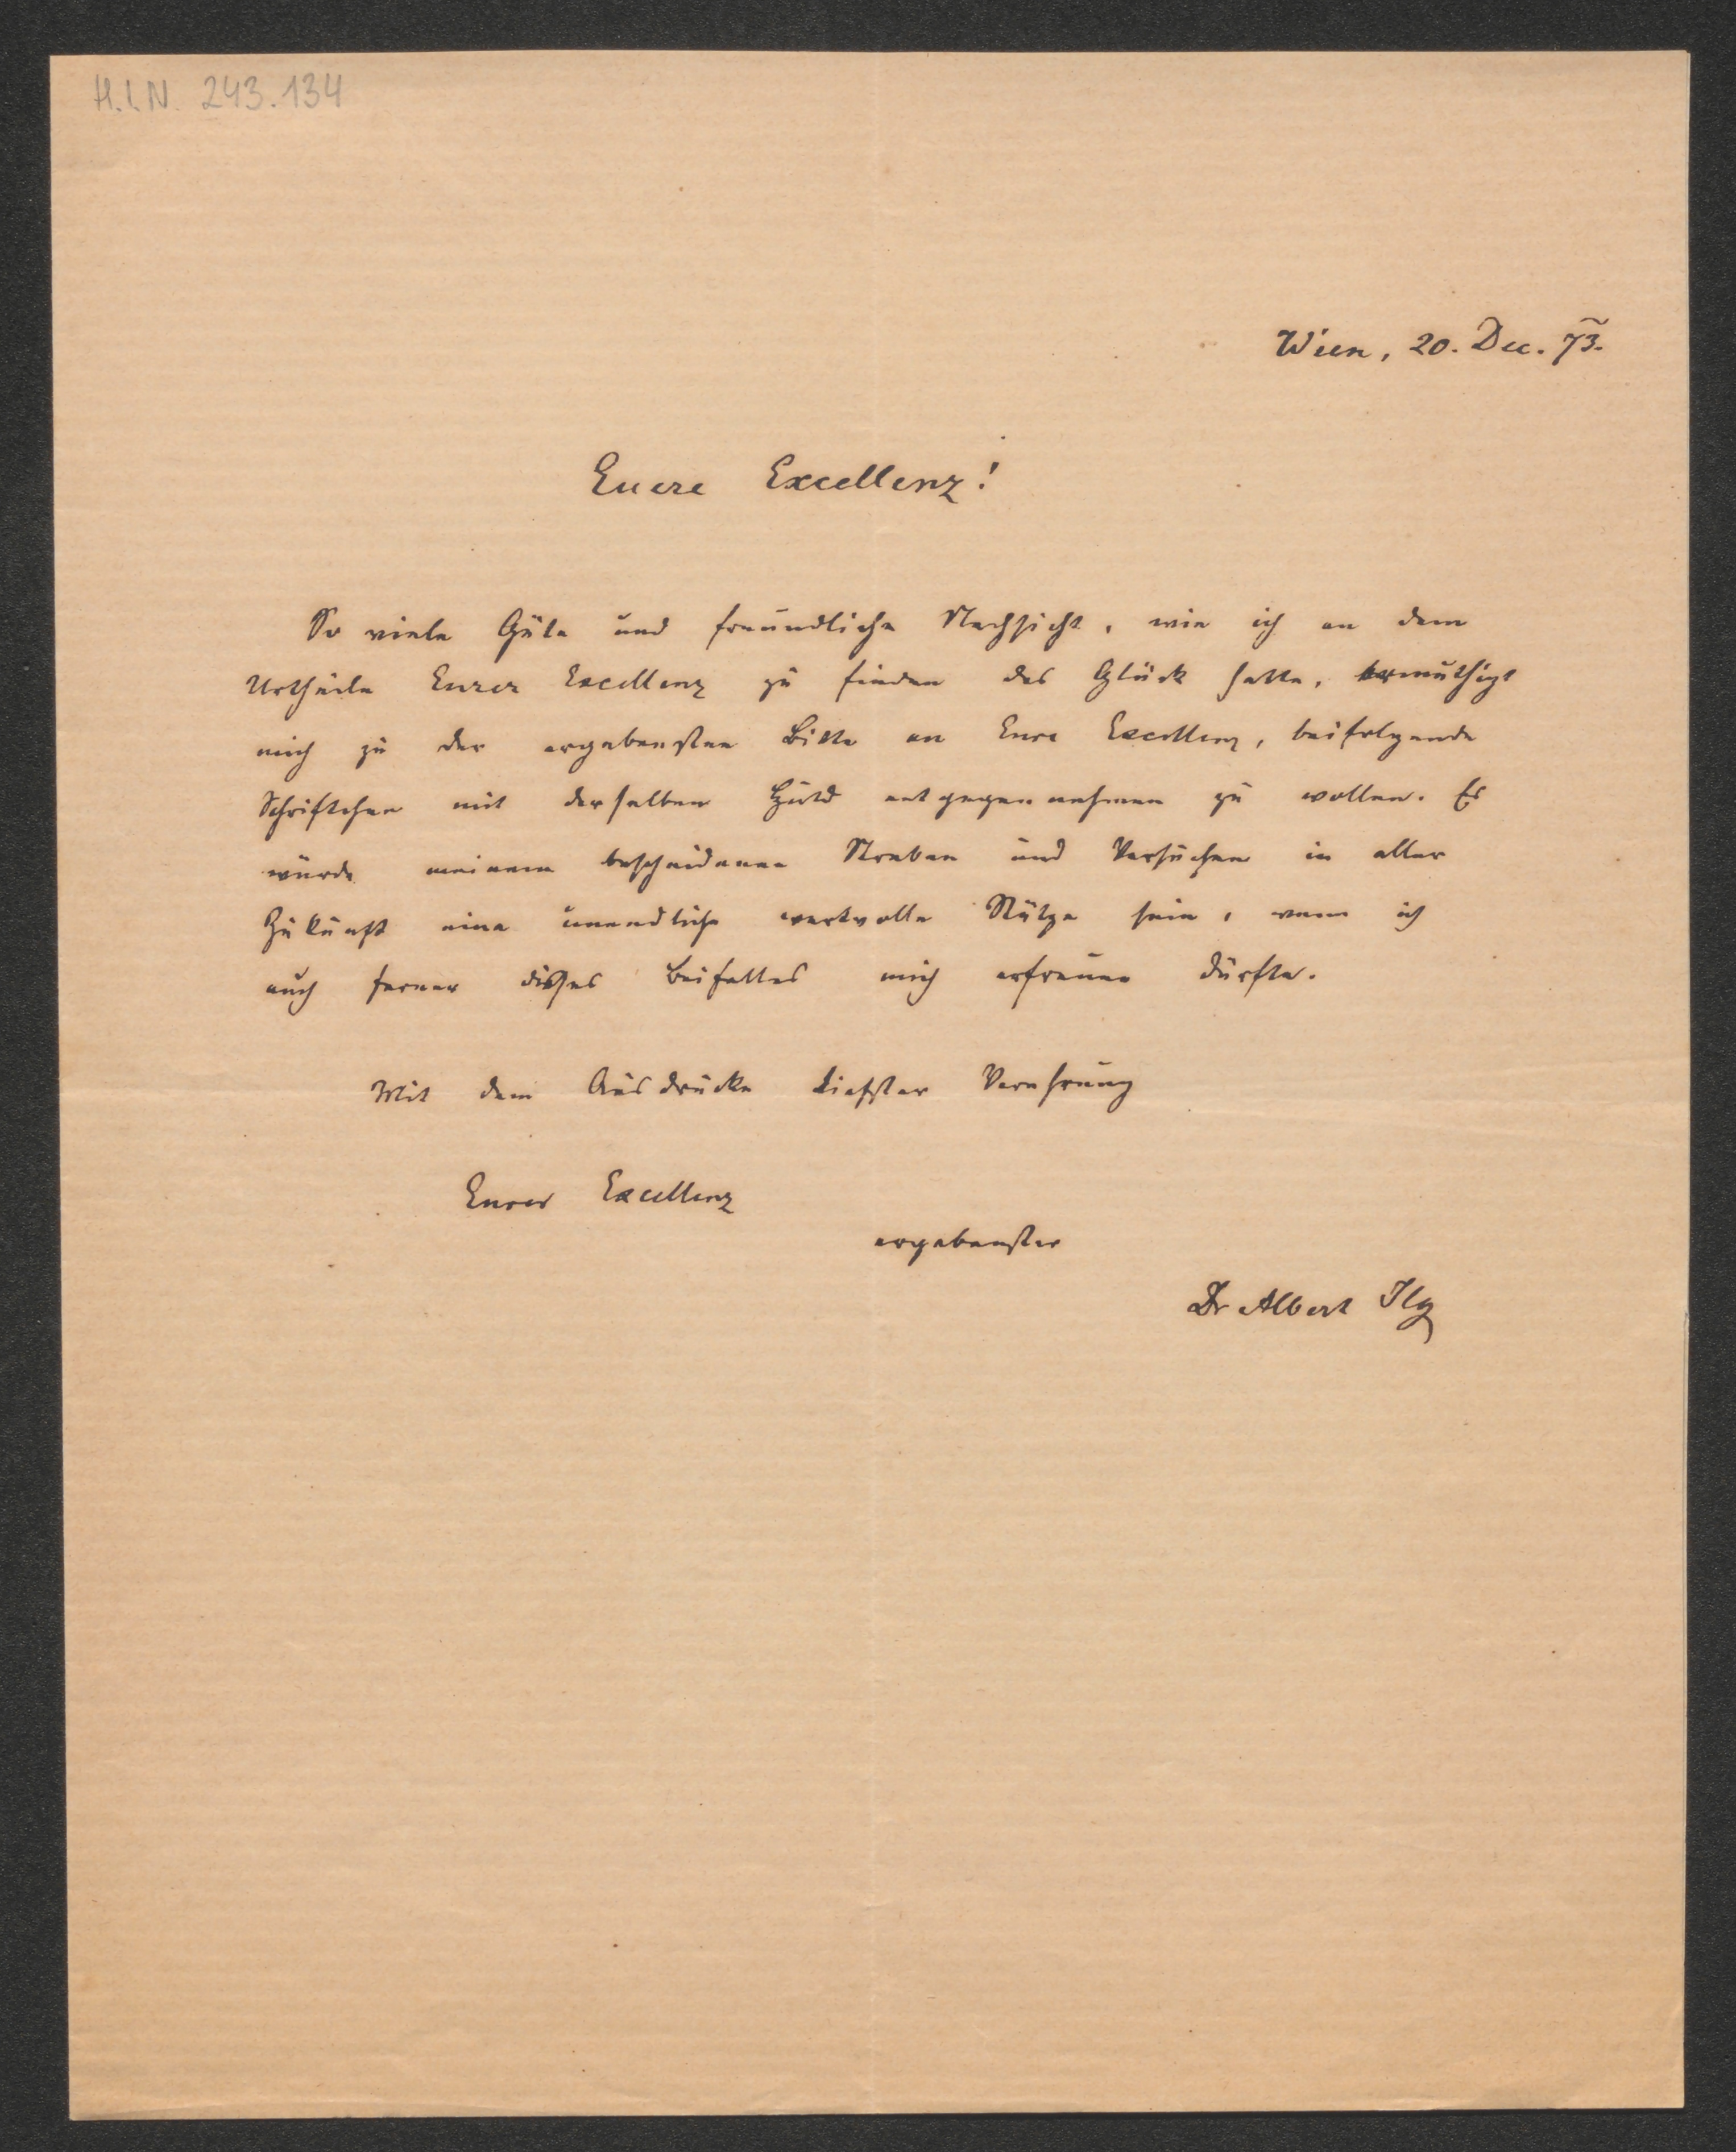 H.I.N. 243.134
Wien, 20. Dec. 73.
Euere Excellenz!
So viele Güte und freundliche Nachsicht, wie ich an dem
Urtheile Eurer Excellenz zu finden das Glück hatte, ermuthigt
mich zu der ergebensten Bitte an Eure Excellenz, beifolgende
Schriftchen mit derselben Huld entgegennehmen zu wollen. Es
würde meinem bescheidenen Streben und Versuchen in aller
Zukunft eine unendlich wertvolle Stütze sein, wenn ich
auch ferner dieses Beifalles mich erfreuen dürfte.
Mit dem Ausdrucke tiefster Verehrung
Eurer Excellenz
ergebenster
Dr Albert Ilg